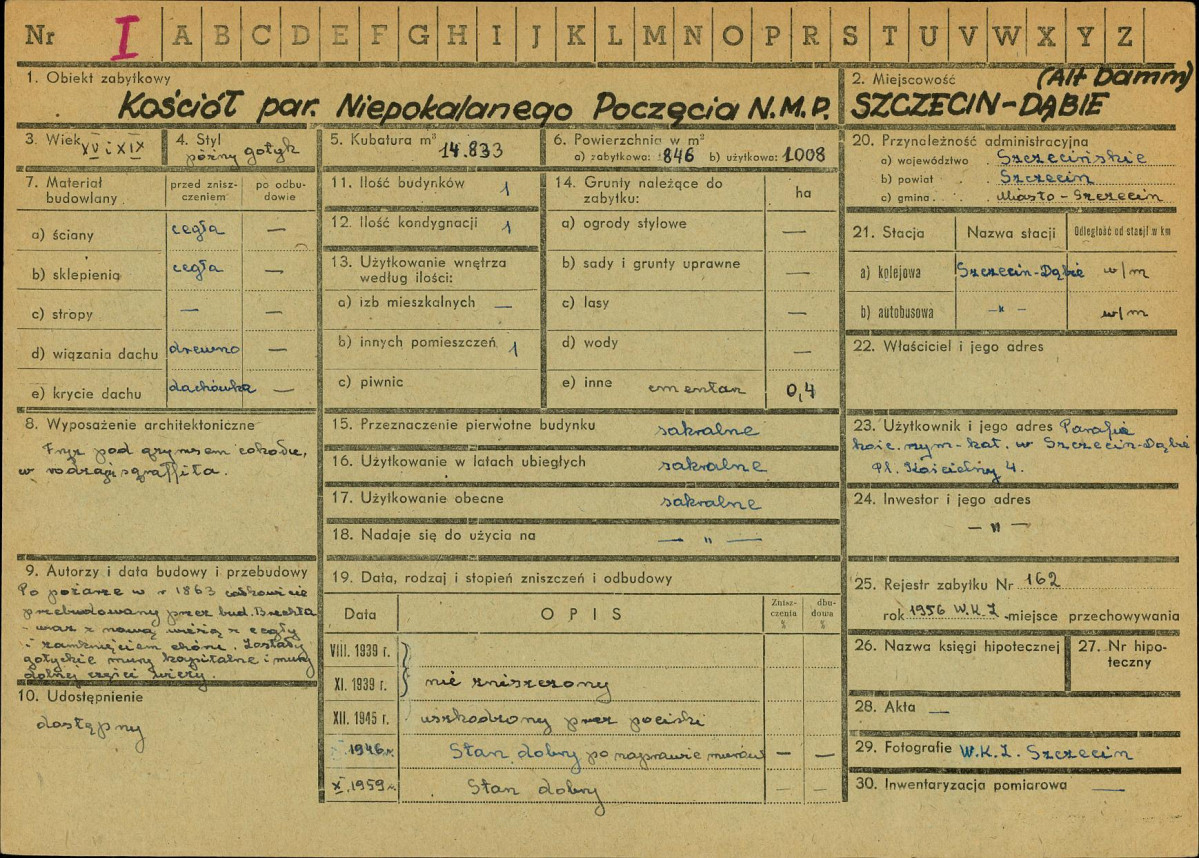 Nr I A B C D E F G H I J K L M N O P R S T U V W X Y Z
1. Obiekt zabytkowy
Kościół par. Niepokalanego Poczęcia N.M.P.
2. Miejscowość (Alt Damm)
SZCZECIN-DĄBIE
3. Wiek XV i XIX
4. Styl późny gotyk
5. Kubatura m³ 14.833
6. Powierzchnia w m²
a) zabytkowa: 846 b) użytkowa: 1008
7. Materiał budowlany
przed zniszczeniem
po odbudowie
a) ściany cegła —
b) sklepienia cegła —
c) stropy — —
d) wiązania dachu drewno —
e) krycie dachu dachówka —
8. Wyposażenie architektoniczne
Fryz pod gzymsem cokołu,
w rodzaju sgraffita.
9. Autorzy i data budowy i przebudowy
Po pożarze w r 1863 całkowicie
przebudowany przez bud. Brechta
wraz z nową wieżą z cegły
i zamknięciem chóru. Zostały
gotyckie mury kapitalne i mury
dolnej części wieży.
10. Udostępnienie
dostępny
11. Ilość budynków 1
12. Ilość kondygnacji 1
13. Użytkowanie wnętrza
według ilości:
a) izb mieszkalnych —
b) innych pomieszczeń 1
c) piwnic
14. Grunty należące do
zabytku: ha
a) ogrody stylowe —
b) sady i grunty uprawne —
c) lasy —
d) wody —
e) inne cmentarz 0,4
15. Przeznaczenie pierwotne budynku sakralne
16. Użytkowanie w latach ubiegłych sakralne
17. Użytkowanie obecne sakralne
18. Nadaje się do użycia na — " —
19. Data, rodzaj i stopień zniszczeń i odbudowy
Data OPIS Zniszczenia % dbudowa %
VIII. 1939 r.
XI. 1939 r. nie zniszczony
XII. 1945 r. uszkodzony przez pociski
1946 r. Stan dobry po naprawie murów — —
X. 1959 r. Stan dobry — —
20. Przynależność administracyjna
a) województwo Szczecińskie
b) powiat Szczecin
c) gmina Miasto-Szczecin
21. Stacja Nazwa stacji Odległość od stacji w km
a) kolejowa Szczecin-Dąbie w/m
b) autobusowa -"- w/m
22. Właściciel i jego adres
23. Użytkownik i jego adres Parafia
kośc. rzym-kat. w Szczecin-Dąbie
Pl. Kościelny 4.
24. Inwestor i jego adres
— " —
25. Rejestr zabytku Nr 162
rok 1956 W.K.Z. miejsce przechowywania
26. Nazwa księgi hipotecznej
27. Nr hipoteczny
28. Akta —
29. Fotografie W.K.Z. Szczecin
30. Inwentaryzacja pomiarowa —